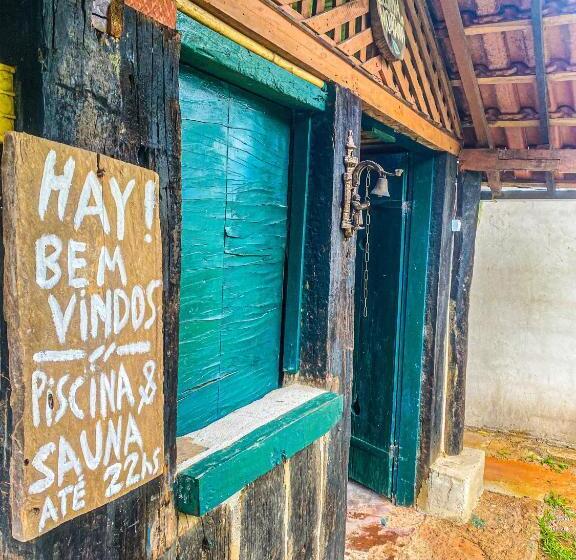 HAY!
BEM
VINDOS
PISCINA &
SAUNA
ATÉ 22hs